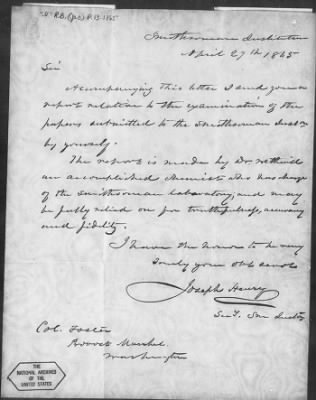 Smithsonian Institution
April 27th 1865
Sir
Accompanying this letter I send you a
report relative to the examination of the
papers submitted to the Smithsonian Instn
by yourself.
The report is made by Dr.
an accomplished chemist who has charge
of the Smithsonian laboratory, and may
be fully relied on for truthfulness, accuracy
and fidelity.
I have the honor to be very
truly your obt servt
Joseph Henry
Sect. Smn Instn
Col. Foster
Provost Marshal
Washington
THE
NATIONAL ARCHIVES
OF THE
UNITED STATES